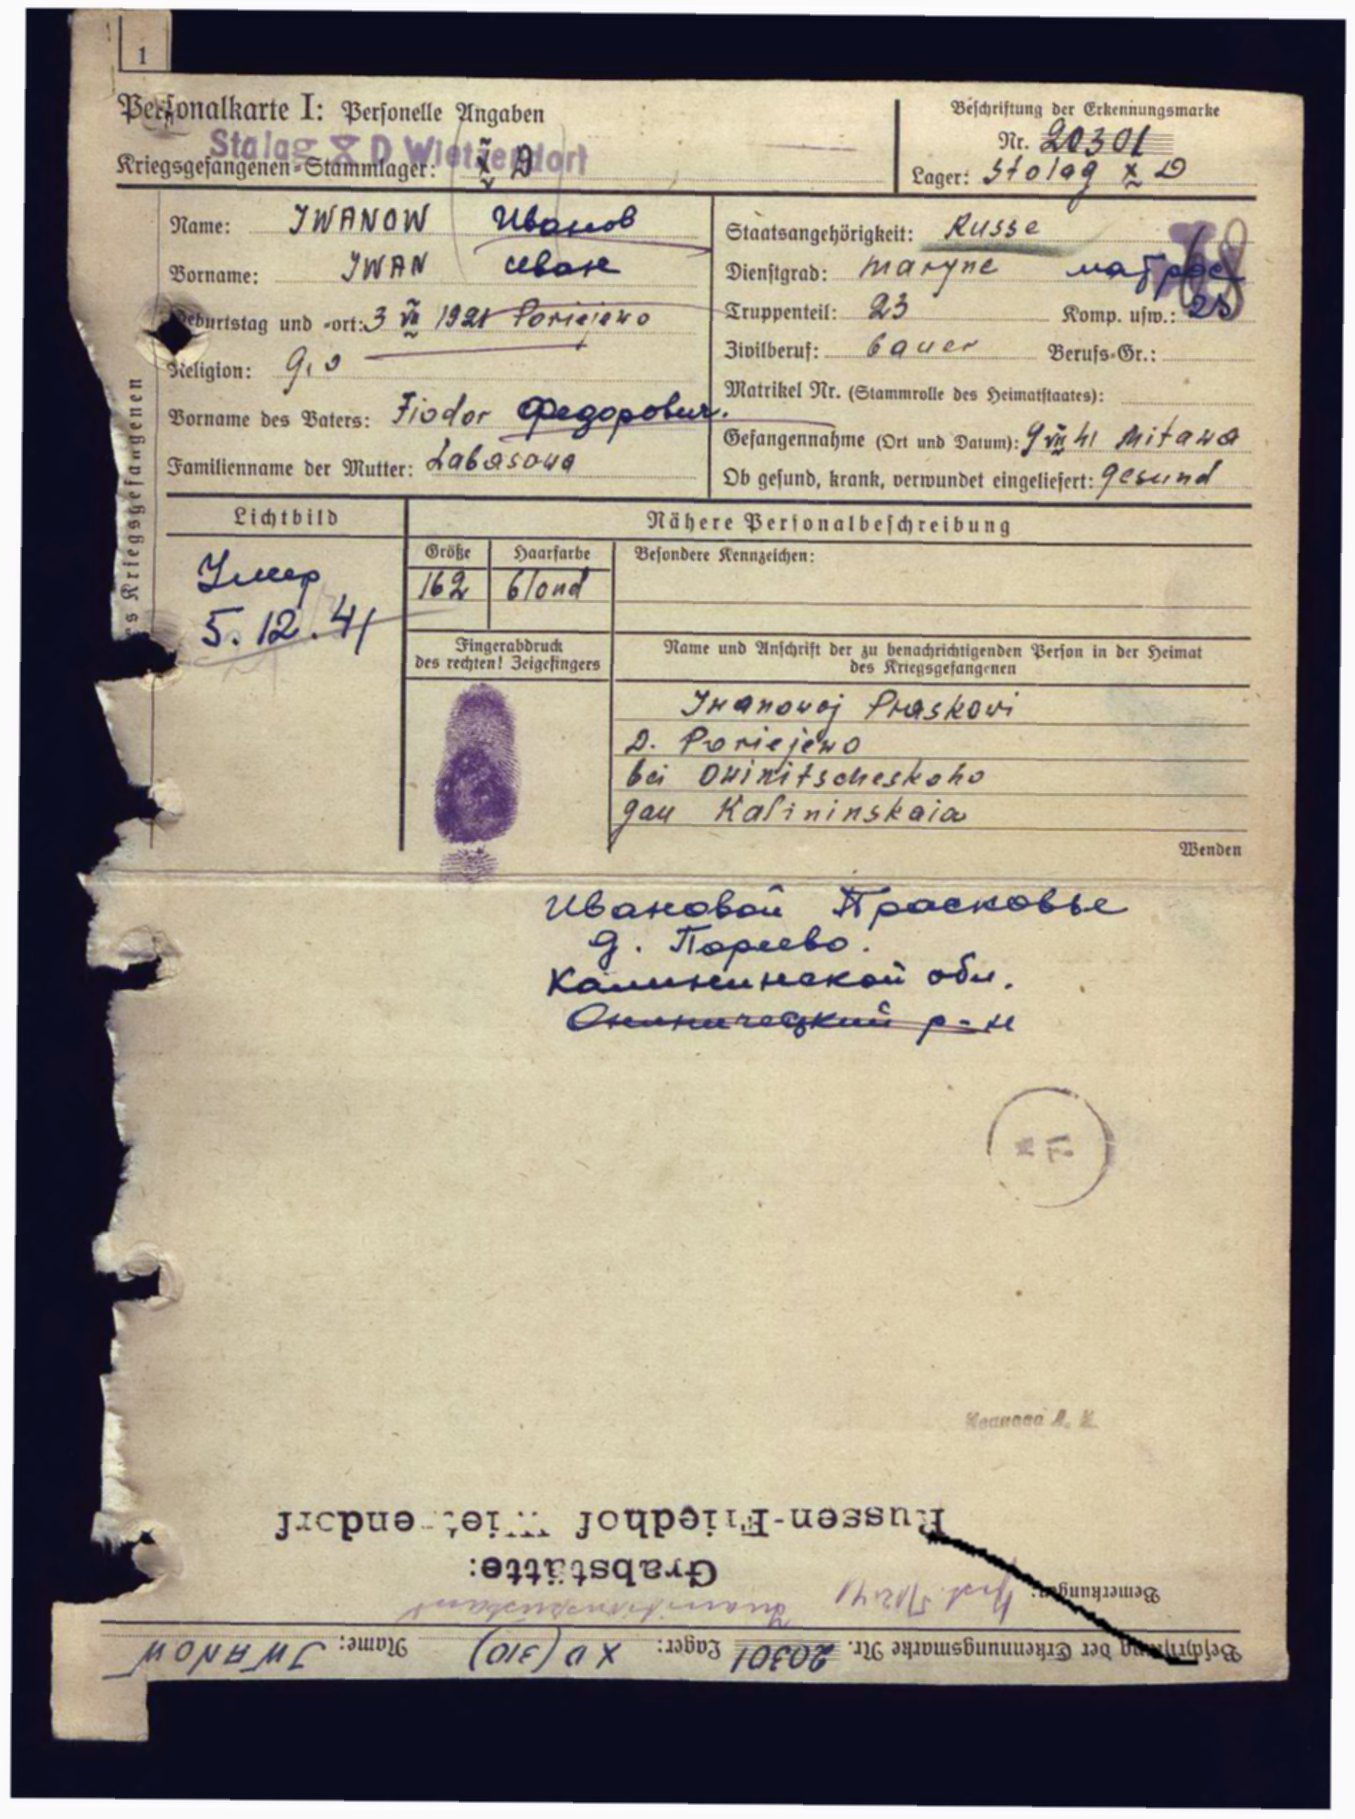 1
Personalkarte I: Personelle Angaben
Beschriftung der Erkennungsmarke
Stalag X D Wietzendorf
Nr. 20301
Kriegsgefangenen-Stammlager: X D
Lager: Stolag X D
Name: IWANOW Иванов
Staatsangehörigkeit: Russe
Vorname: IWAN Иван
Dienstgrad: maryne матрос
Geburtstag und -ort: 3 VII 1921 Poriejewo
Truppenteil: 23 Komp. usw.: 23
Religion: g. o
Zivilberuf: bauer Berufs-Gr.:
Matrikel Nr. (Stammrolle des Heimatstaates):
Vorname des Vaters: Fiodor Федорович.
Gefangennahme (Ort und Datum): 9 VII 41 Mitawa
Familienname der Mutter: Labasowa
Ob gesund, krank, verwundet eingeliefert: gesund
es Kriegsgefangenen
Lichtbild
Nähere Personalbeschreibung
Größe Haarfarbe Besondere Kennzeichen:
162 blond
Умер
5.12.41
Fingerabdruck
des rechten! Zeigefingers
Name und Anschrift der zu benachrichtigenden Person in der Heimat
des Kriegsgefangenen
Iwanowoj Praskowi
D. Poriejewo
bei Owinitscheskoho
gau Kalininskaia
Wenden
Ивановой Прасковье
д. Пореево.
Калининской обл.
р-н
Russen-Friedhof Wietzendorf
Grabstätte:
Bemerkungen:
Beschriftung der Erkennungsmarke Nr. 20301 Lager: X D (310) Name: IWANOW